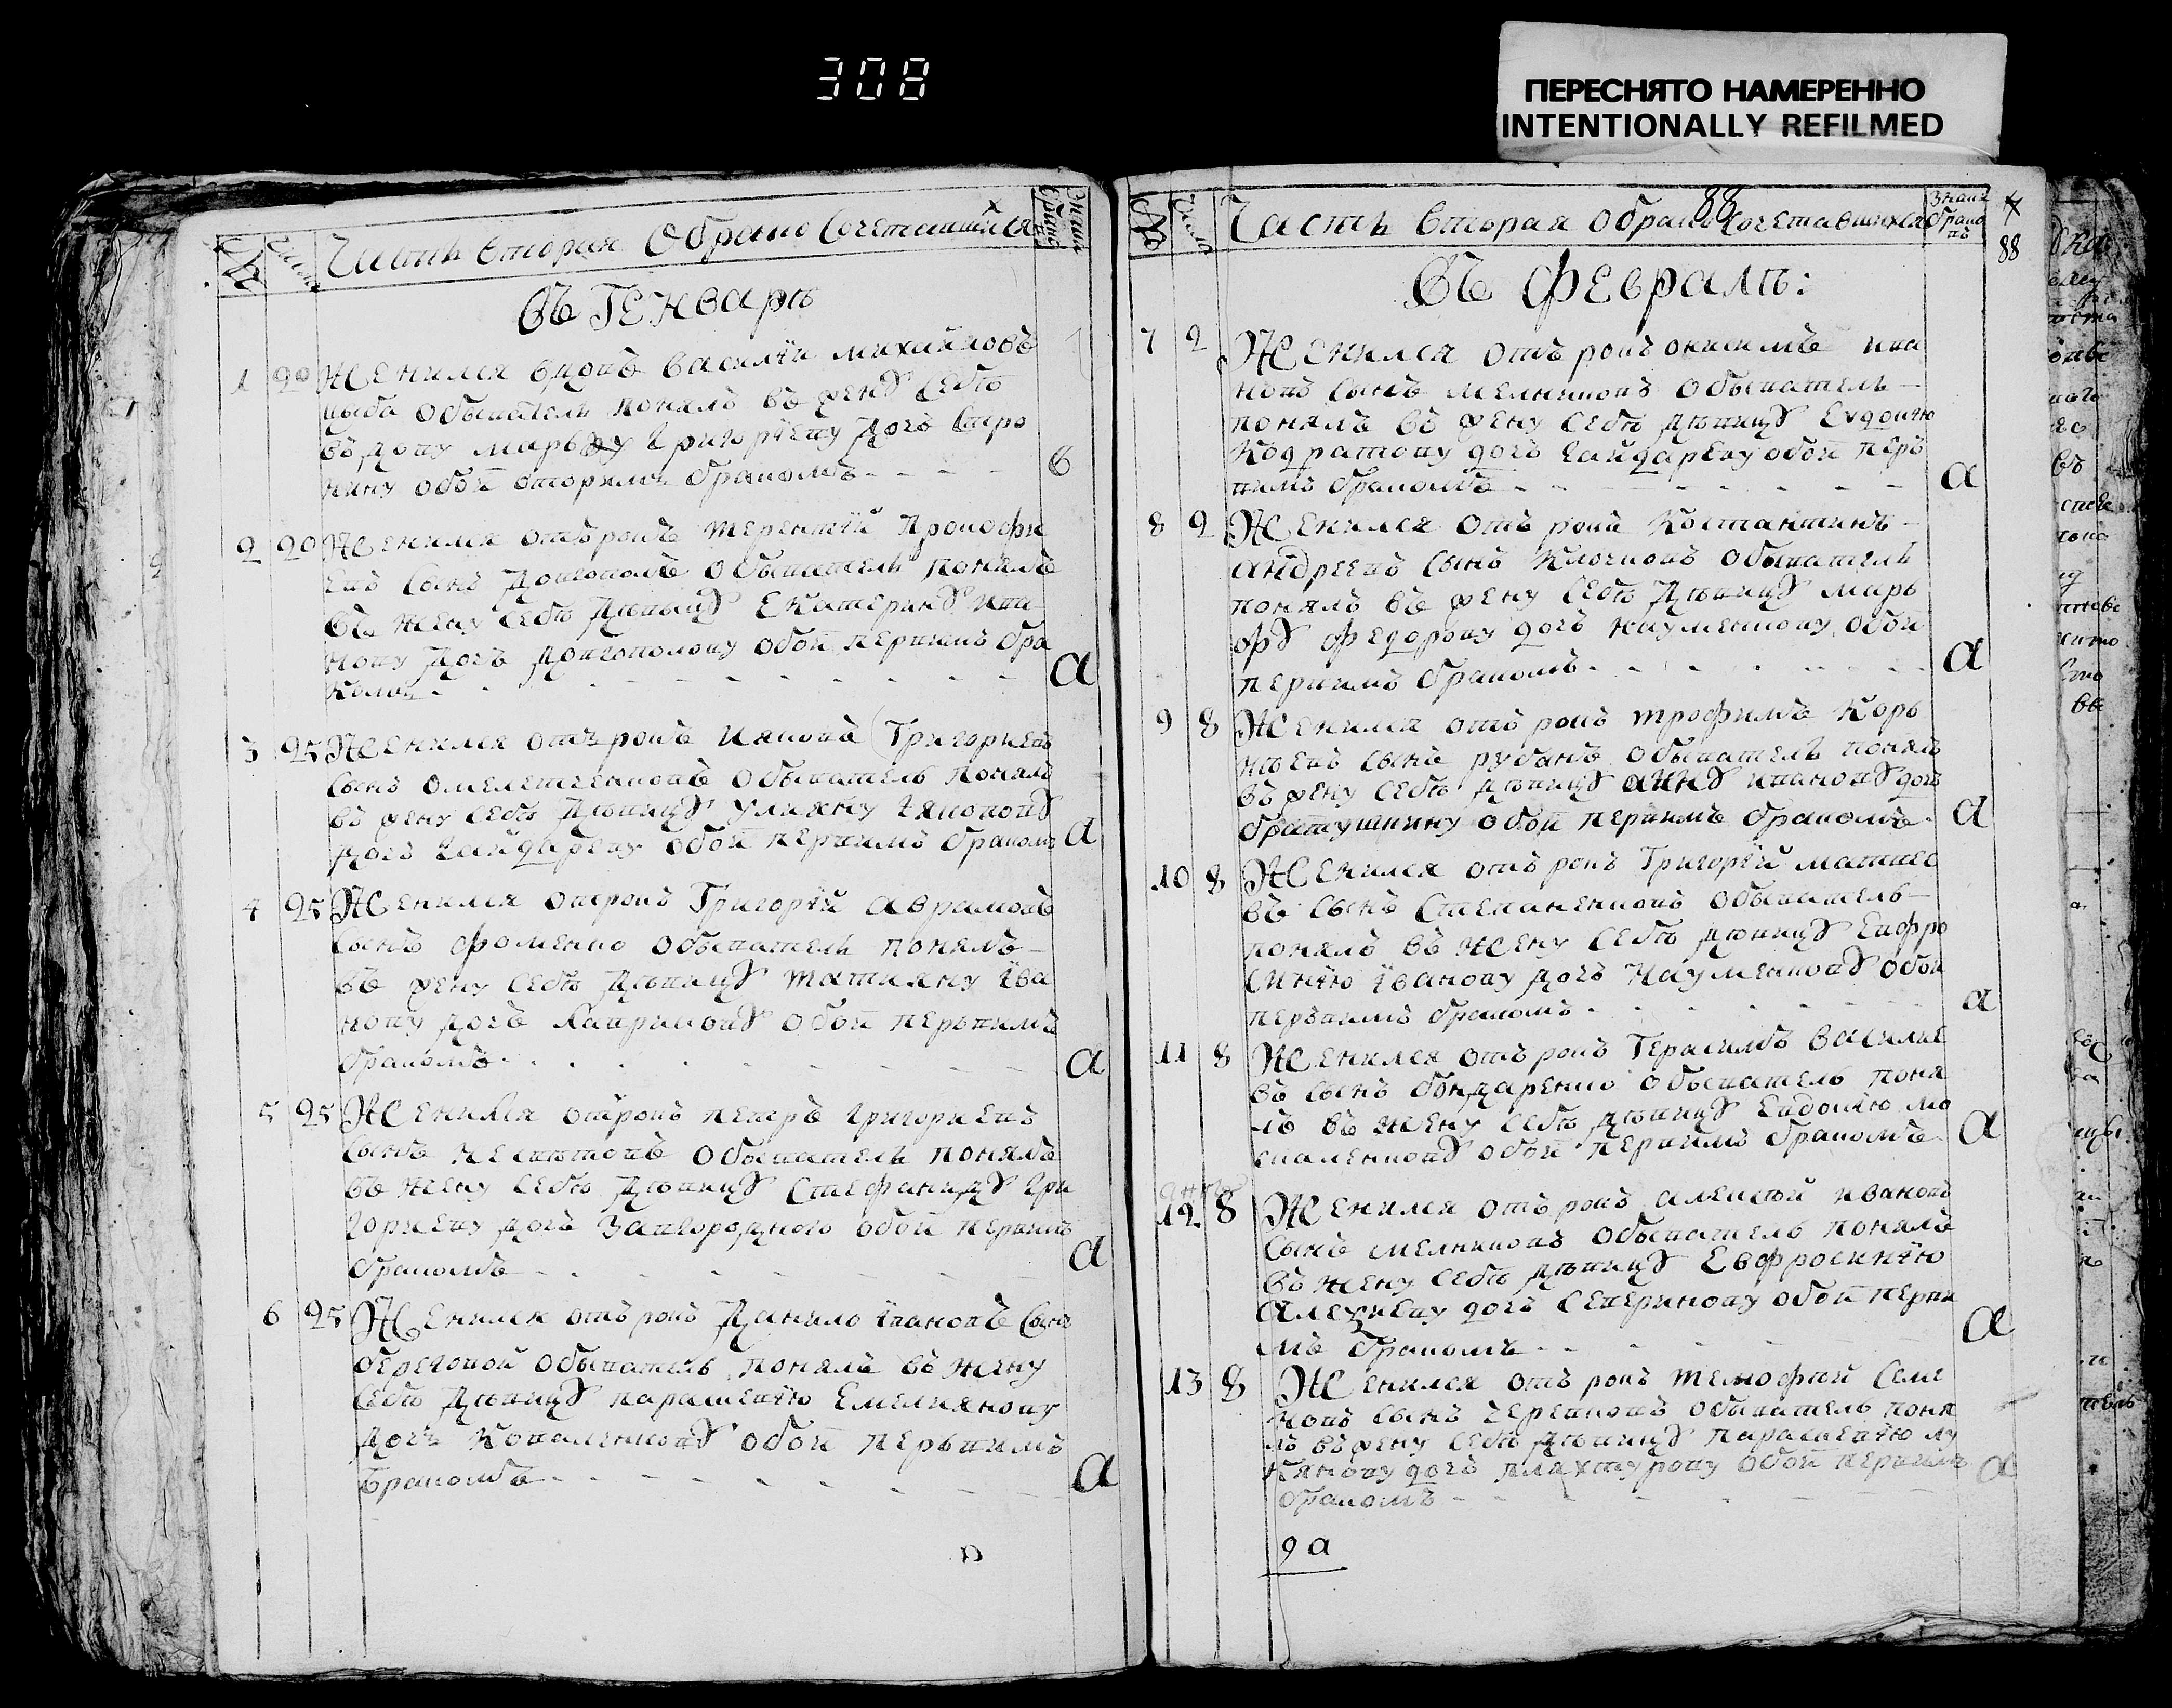 308
ПЕРЕСНЯТО НАМЕРЕННО
INTENTIONALLY REFILMED
№
Число
Часть вторая О бракосочетавшихся
Въ Генваре
1 20 Женился вдовъ василий михайловъ
цыба обыватель понялъ въ жену себѣ
вдову марьву григориеву дочь
обои вторимъ бракомъ
б
2 20 Женился отърокъ терентий Прокофи
евъ сынъ Довгополъ обыватель понялъ
въ жену себѣ Дѣвицу Екатерину ива
нову дочь Довгополову обои первимъ бра
комъ
а
3 25 Женился отърокъ Иаковъ Григориевъ
сынъ омелетченковъ обыватель понялъ
въ жену себѣ Дѣвицу улияну Iяковову
дочь Гайдареву обои первимъ бракомъ
а
4 25 Женился отрокъ Григорий аврамовъ
сынъ фоменко обыватель понялъ
въ жену себѣ Дѣвицу татияну ива
нову дочь обои первимъ
бракомъ
а
5 25 Женился отрокъ петръ григориевъ
сынъ обыватель понялъ
въ жену себѣ Дѣвицу Стефаниду гри
гориеву дочь Завгородного обои первимъ
бракомъ
а
6 25 Женился отърокъ Данило iвановъ сынъ
береговой обыватель понялъ въ жену
себѣ Дѣвицу параскевию Емелиянову
дочь Коваленкову обои первимъ
бракомъ
а
№
Число
Часть вторая о бракосочетавшихся
88
88
Въ Феврале:
7 2 Женился отърокъ онисимъ ива
новъ сынъ мелниковъ обыватель
понялъ въ жену себѣ дѣвицу Евдокию
Кодратову дочь гайдареву обои пер
вимъ бракомъ
а
8 2 Женился отърокъ Костантинъ
андреевъ сынъ Клочковъ обыватель
понялъ въ жену себѣ Дѣвицу марь
фу федорову дочь науменкову обои
первимъ бракомъ
а
9 8 Женился отърокъ трофимъ Кор
нѣевъ сынъ рубанъ обыватель понялъ
въ жену себѣ дѣвицу анну иванову дочь
братушкину обои первимъ бракомъ
а
10 8 Женился отърокъ Григорий матвее
въ сынъ Степаненковъ обыватель
понялъ въ жену себѣ дѣвицу Евфро
синию iванову дочь Науменкову обои
первимъ бракомъ
а
11 8 Женился отърокъ Герасимъ василие
въ сынъ бондаренко обыватель поня
лъ въ жену себѣ дѣвицу Евдокию мо
скаленкову обои первимъ бракомъ
а
12 8 Женился отърокъ алексей ивановъ
сынъ мелниковъ обыватель понялъ
въ жену себѣ дѣвицу Евфросинию
алексиеву дочь Северинову обои перви
мъ бракомъ
а
13 8 Женился отърокъ темофей Симе
новъ сынъ черевковъ обыватель поня
лъ въ жену себѣ дѣвицу параскевию лу
кянову дочь обои первимъ
бракомъ
а
9 а